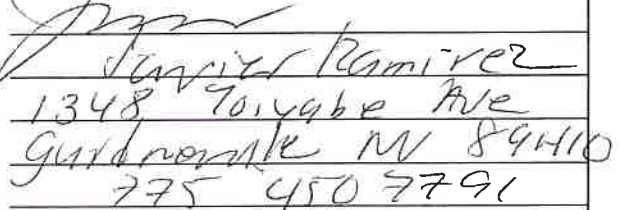 Javier Ramirez
1348 Toiyabe Ave
Gardnerville NV 89410
775 450 7791